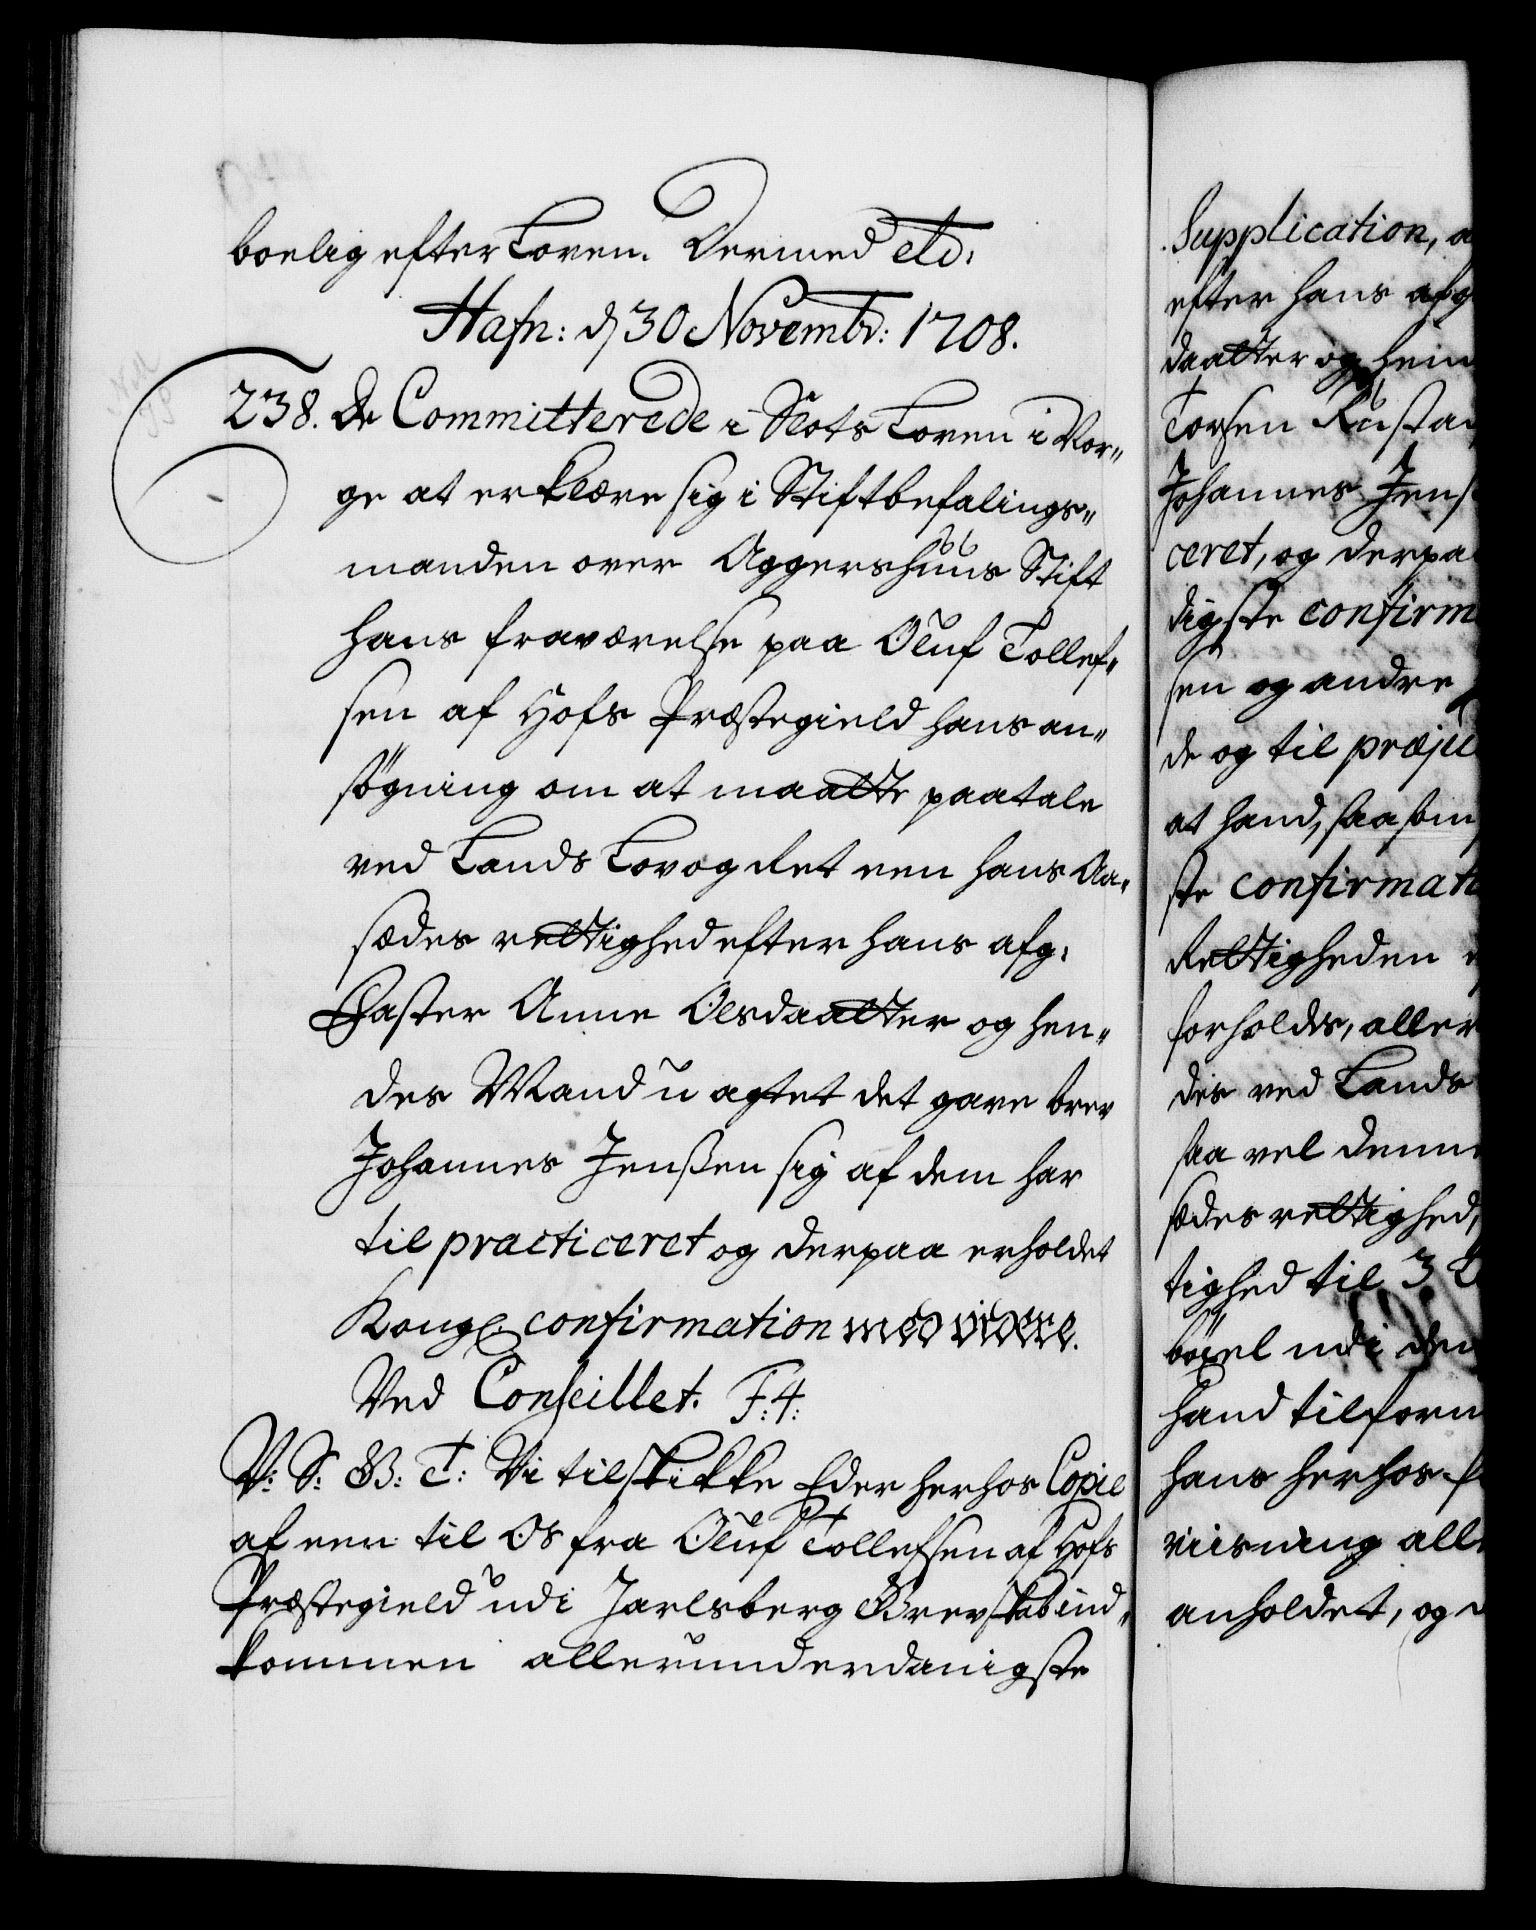 boelig efter Loven. Dermed etc:
Hafn: d 30 Novembr: 1708.
238. De Committerede i Slots Loven i Nor„
ge at erklære sig i Stiftbefalings„
manden over Aggershuus Stift
hans fraværelse paa Oluf Tollef„
sen af Hofs Præstegield hans an„
søgning om at maatte paatale
ved Lands Lov og Ret een hans Aa„
sædes rettighed efter hans afg:
Faster Anne Olsdaatter og hen„
des Mand uagtet det gave brev
Johannes Jenssen sig af dem har
til practiceret og derpaa erholdet
Kongl. confirmation med videre.
Ved Conseillet. F: 4:
V: S: G: T: Vi tilskikke Eder herhos Copie
af een til Os fra Oluf Tollefsen af Hofs
Præstegield udi Jarlsberg Grevskab ind„
kommen allerunderdanigste
Supplication, a
efter hans afg
daatter og hen
Torsen Rustad
Johannes Jens
ceret, og derpaa
digste confirm
sen og andre
de og til præju
at hand, saasom
ste confirmati
Rettigheden
forholdes, aller
des ved Lands
saa vel denne
sædes rettighed,
tighed til 3
bøxel udi den
hand tilforn
hans herhos
viisning all
anholdet, og